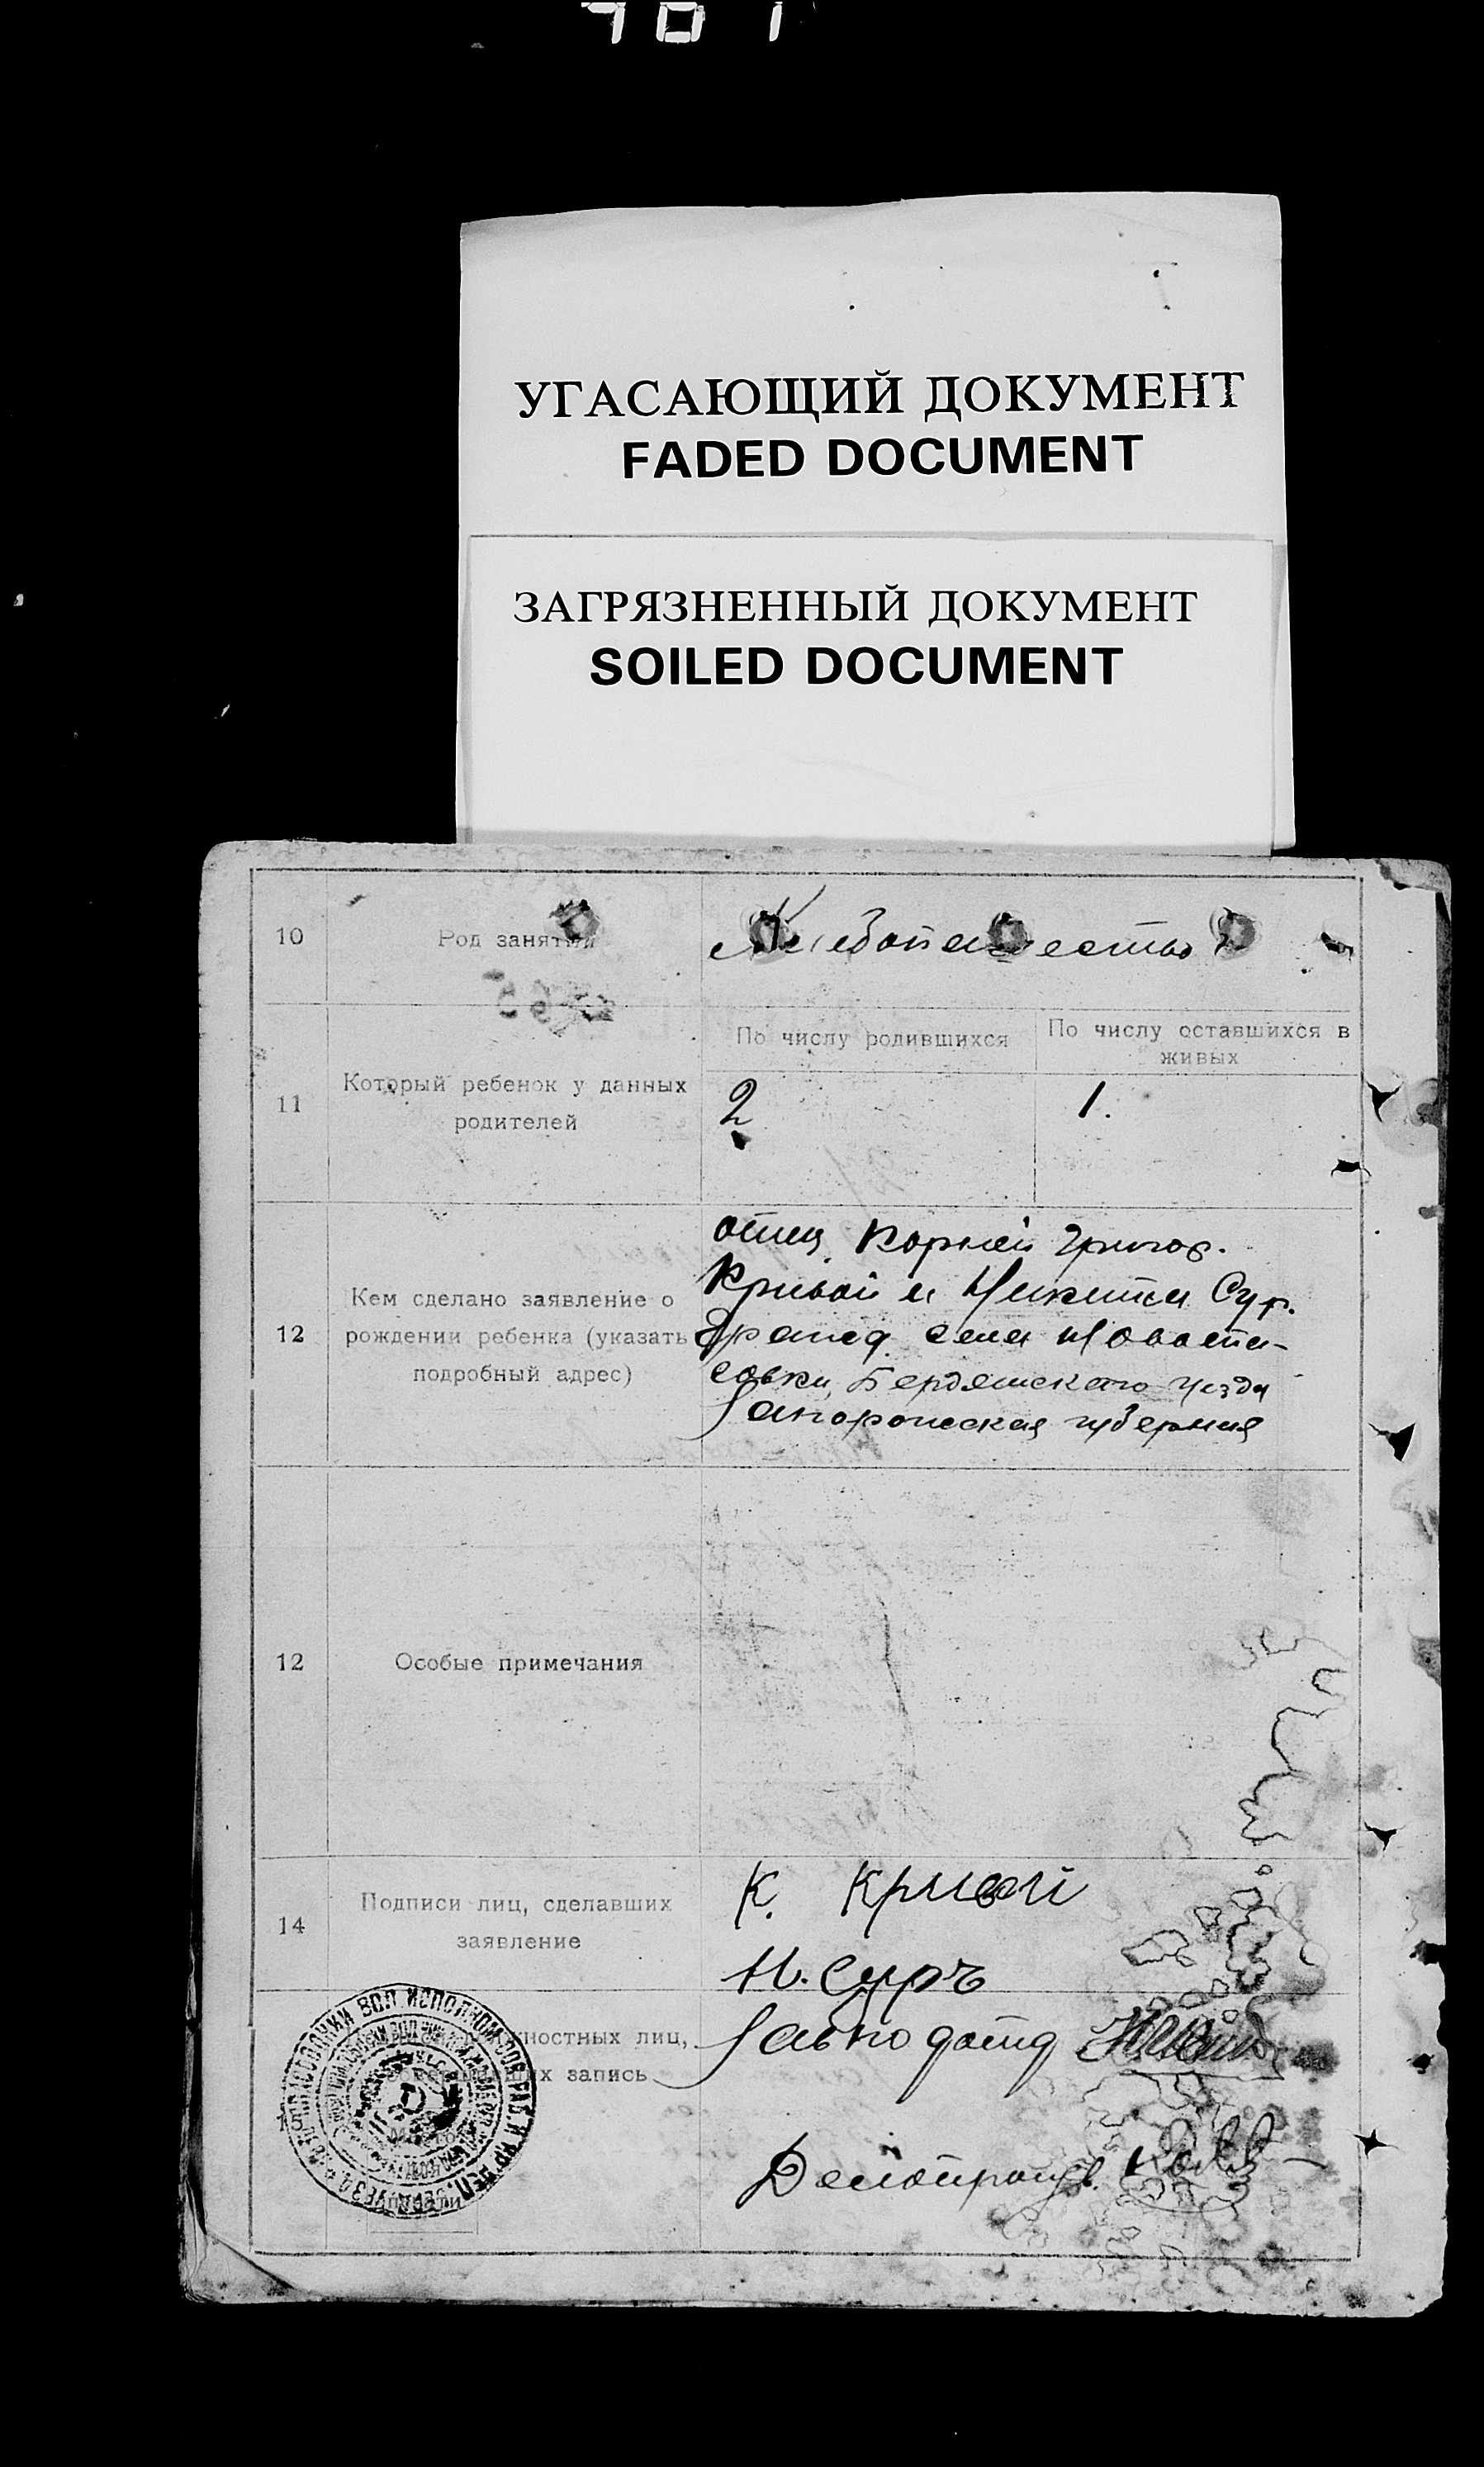 701
УГАСАЮЩИЙ ДОКУМЕНТ
FADED DOCUMENT
ЗАГРЯЗНЕННЫЙ ДОКУМЕНТ
SOILED DOCUMENT
10
Род занятий
Хлебопашество
11
Который ребенок у данных
родителей
По числу родившихся
2
По числу оставшихся в
живых
1.
12
Кем сделано заявление о
рождении ребенка (указать
подробный адрес)
отец Корней Григор.
Кривой и Никита Сур.
гражд. села Новоспа-
совки, Бердянского уезда
Запорожская губерния
12
Особые примечания
14
Подписи лиц, сделавших
заявление
К. Кривой
Н. Суръ
15
должностных лиц,
запись
Зав по
Делопроизв.
ВОЛ ИСПОЛКОМ